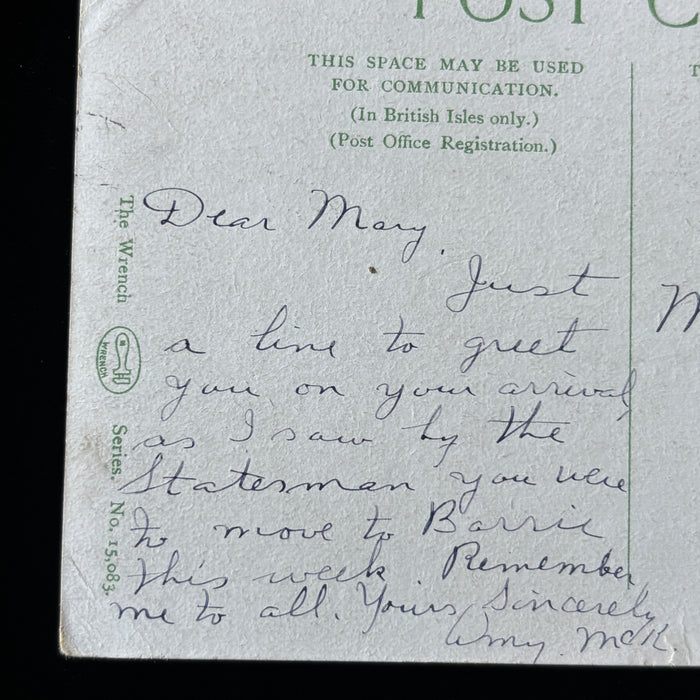 POST C
THIS SPACE MAY BE USED
FOR COMMUNICATION.
(In British Isles only.)
(Post Office Registration.)
T
The Wrench
WRENCH
Series. No. 15,083.
Dear Mary,
Just
a line to greet
you on your arrival,
as I saw by the
Statesman you were
to move to Barrie
this week. Remember
me to all. Yours Sincerely
Amy. McK.
M